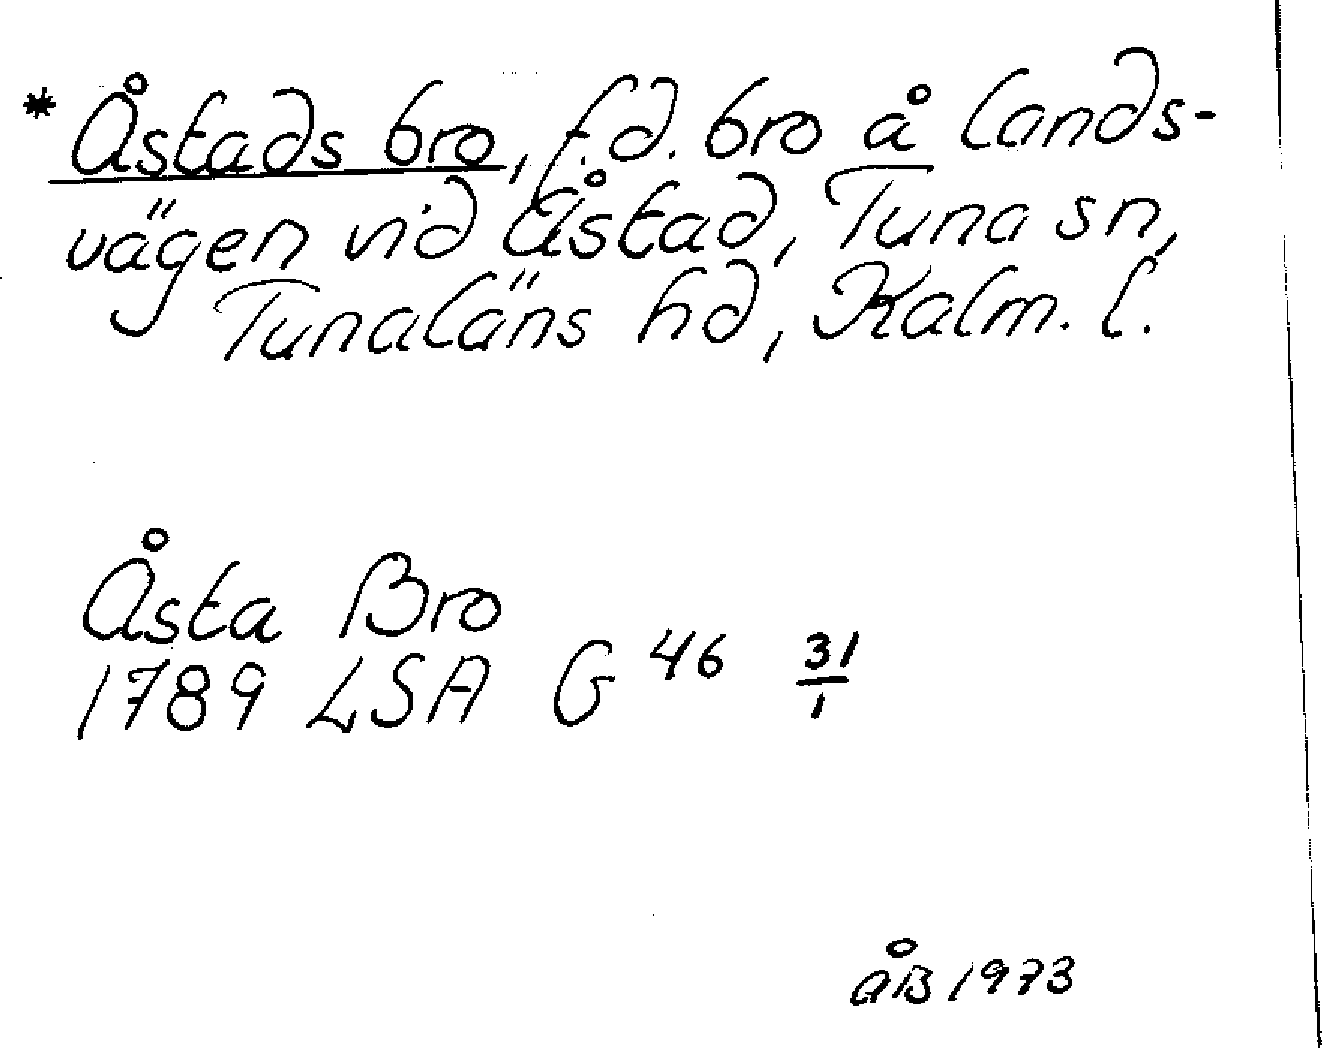 * Åstads bro, f.d. bro å lands-
vägen vid Åstad, Tuna sn,
Tunaläns hd, Kalm. l.
Åsta Bro
1789 LSA G 46 31/1
ÅB 1973